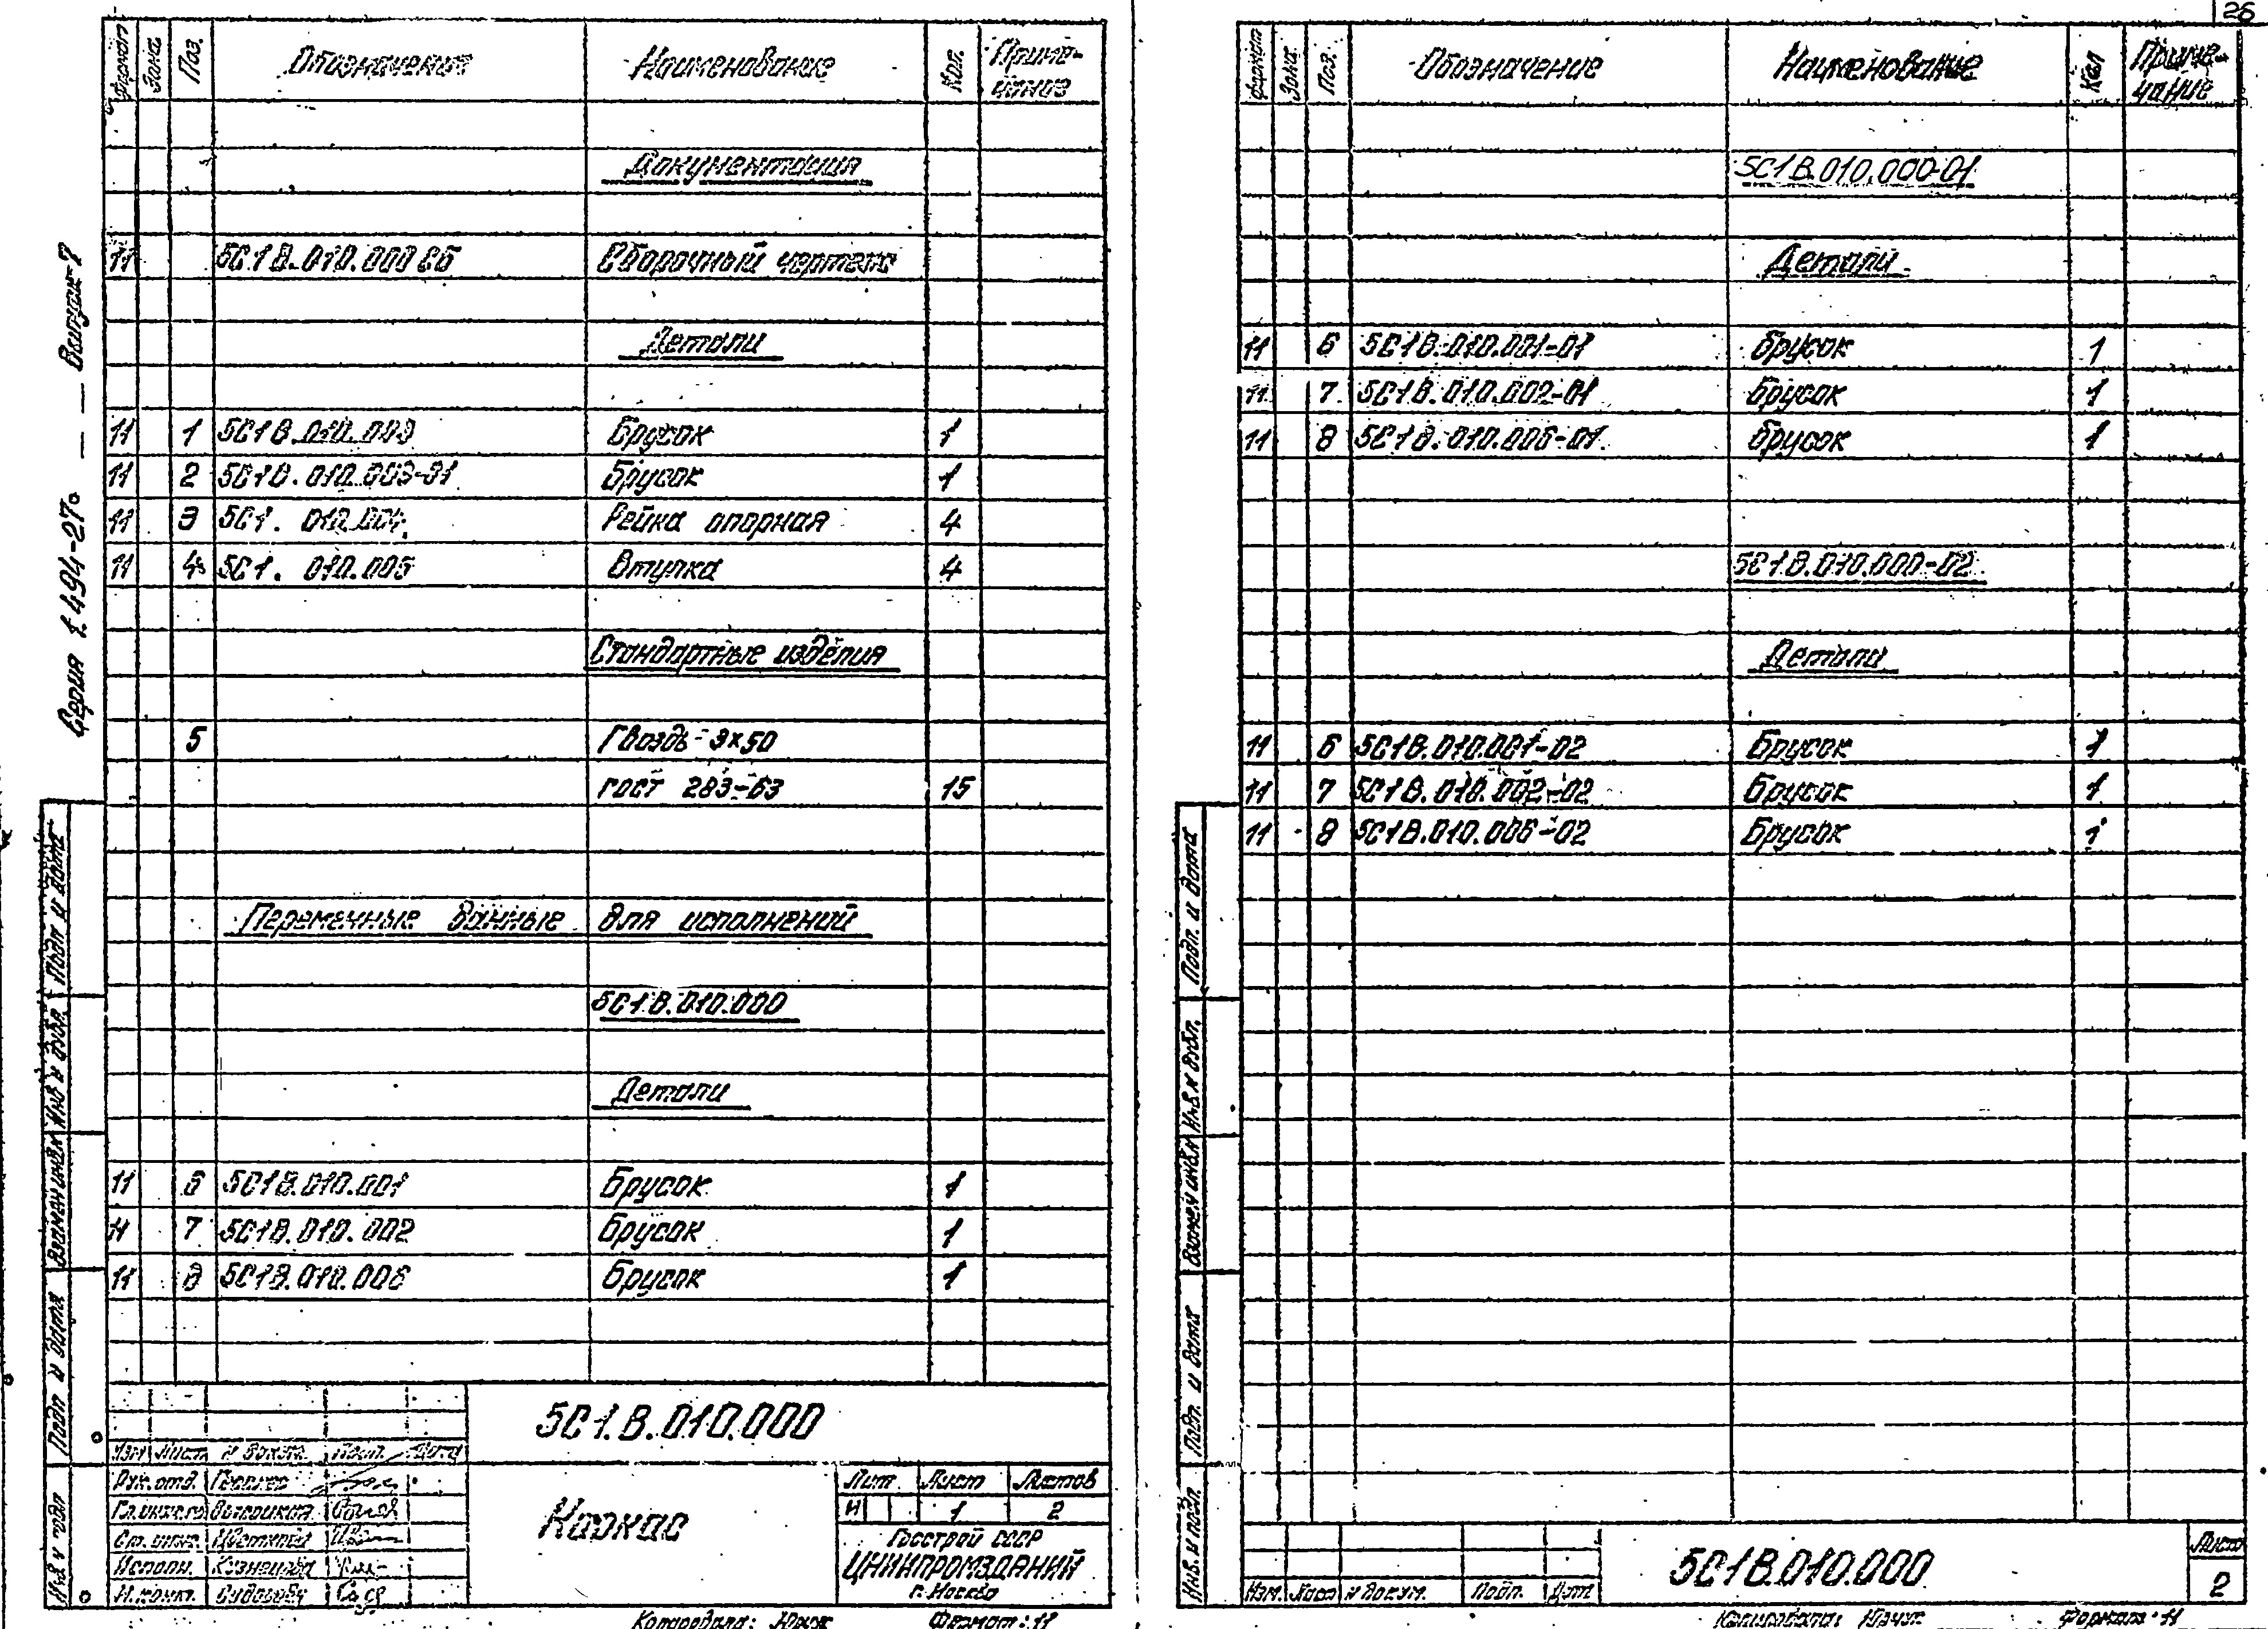 26
Серия 1.494-27 — — Выпуск 7
Формат Зона Поз. Обозначение Наименование Кол. Приме-
чание
Документация
11 5С1В.010.000СБ Сборочный чертеж
Детали
11 1 5С1В.010.003 Брусок 1
11 2 5С1В.010.003-01 Брусок 1
11 3 5С1. 010.004 Рейка опорная 4
11 4 5С1. 010.005 Втулка 4
Стандартные изделия
5 Гвоздь 3х50
ГОСТ 283-63 15
Переменные данные для исполнений
5С1.В.010.000
Детали
11 6 5С1В.010.001 Брусок 1
11 7 5С1В.010.002 Брусок 1
11 8 5С1В.010.006 Брусок 1
Подп и дата
Инв и дубл.
Взамен инв и
Подп и дата
Инв и подл
5С1.В.010.000
Изм Лист и докум. Подп. Дата
Рук. отд.
Ст. инж.
Исполн. Кузнецова
Н.контр.
Каркас
Лит. Лист Листов
И 1 2
Госстрой СССР
ЦНИИПРОМЗДАНИЙ
г. Москва
Копировала: Формат: 11
Формат Зона Поз. Обозначение Наименование Кол Приме-
чание
5С1В.010.000-01
Детали
11 6 5С1В.010.001-01 Брусок 1
11 7 5С1В.010.002-01 Брусок 1
11 8 5С1В.010.006-01 Брусок 1
5С1В.010.000-02
Детали
11 6 5С1В.010.001-02 Брусок 1
11 7 5С1В.010.002-02 Брусок 1
11 8 5С1В.010.006-02 Брусок 1
Подп. и дата
Инв. и дубл.
Взамен инв. и
Подп. и дата
Инв. и подл.
Изм. Лист и докум. Подп. Дата
5С1В.010.000
Лист
2
Копировала: Формат: 11